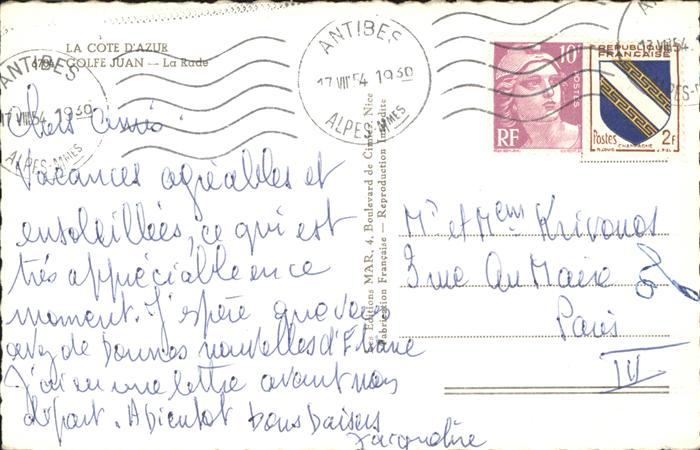 LA COTE D'AZUR
6704 GOLFE JUAN — La Rade
ANTIBES
17 VII 54 1930
ALPES-MMES
ANTIBES
17 VII 54 1930
ALPES-MMES
10F
POSTES
RF
REPUBLIQUE FRANÇAISE
Postes 2F
CHAMPAGNE
Chers amis
Vacances agréables et
ensoleillées, ce qui est
très appréciable en ce
moment. J'espère que vous
avez de bonnes nouvelles d'
J'ai eu une lettre avant mon
départ. A bientot bons baisers
Jacqueline
Les Editions MAR, 4, Boulevard de Cimiez, Nice
Fabrication Française — Reproduction Interdite
Mr et Mme Krivonos
3 rue Au Maire
Paris
III